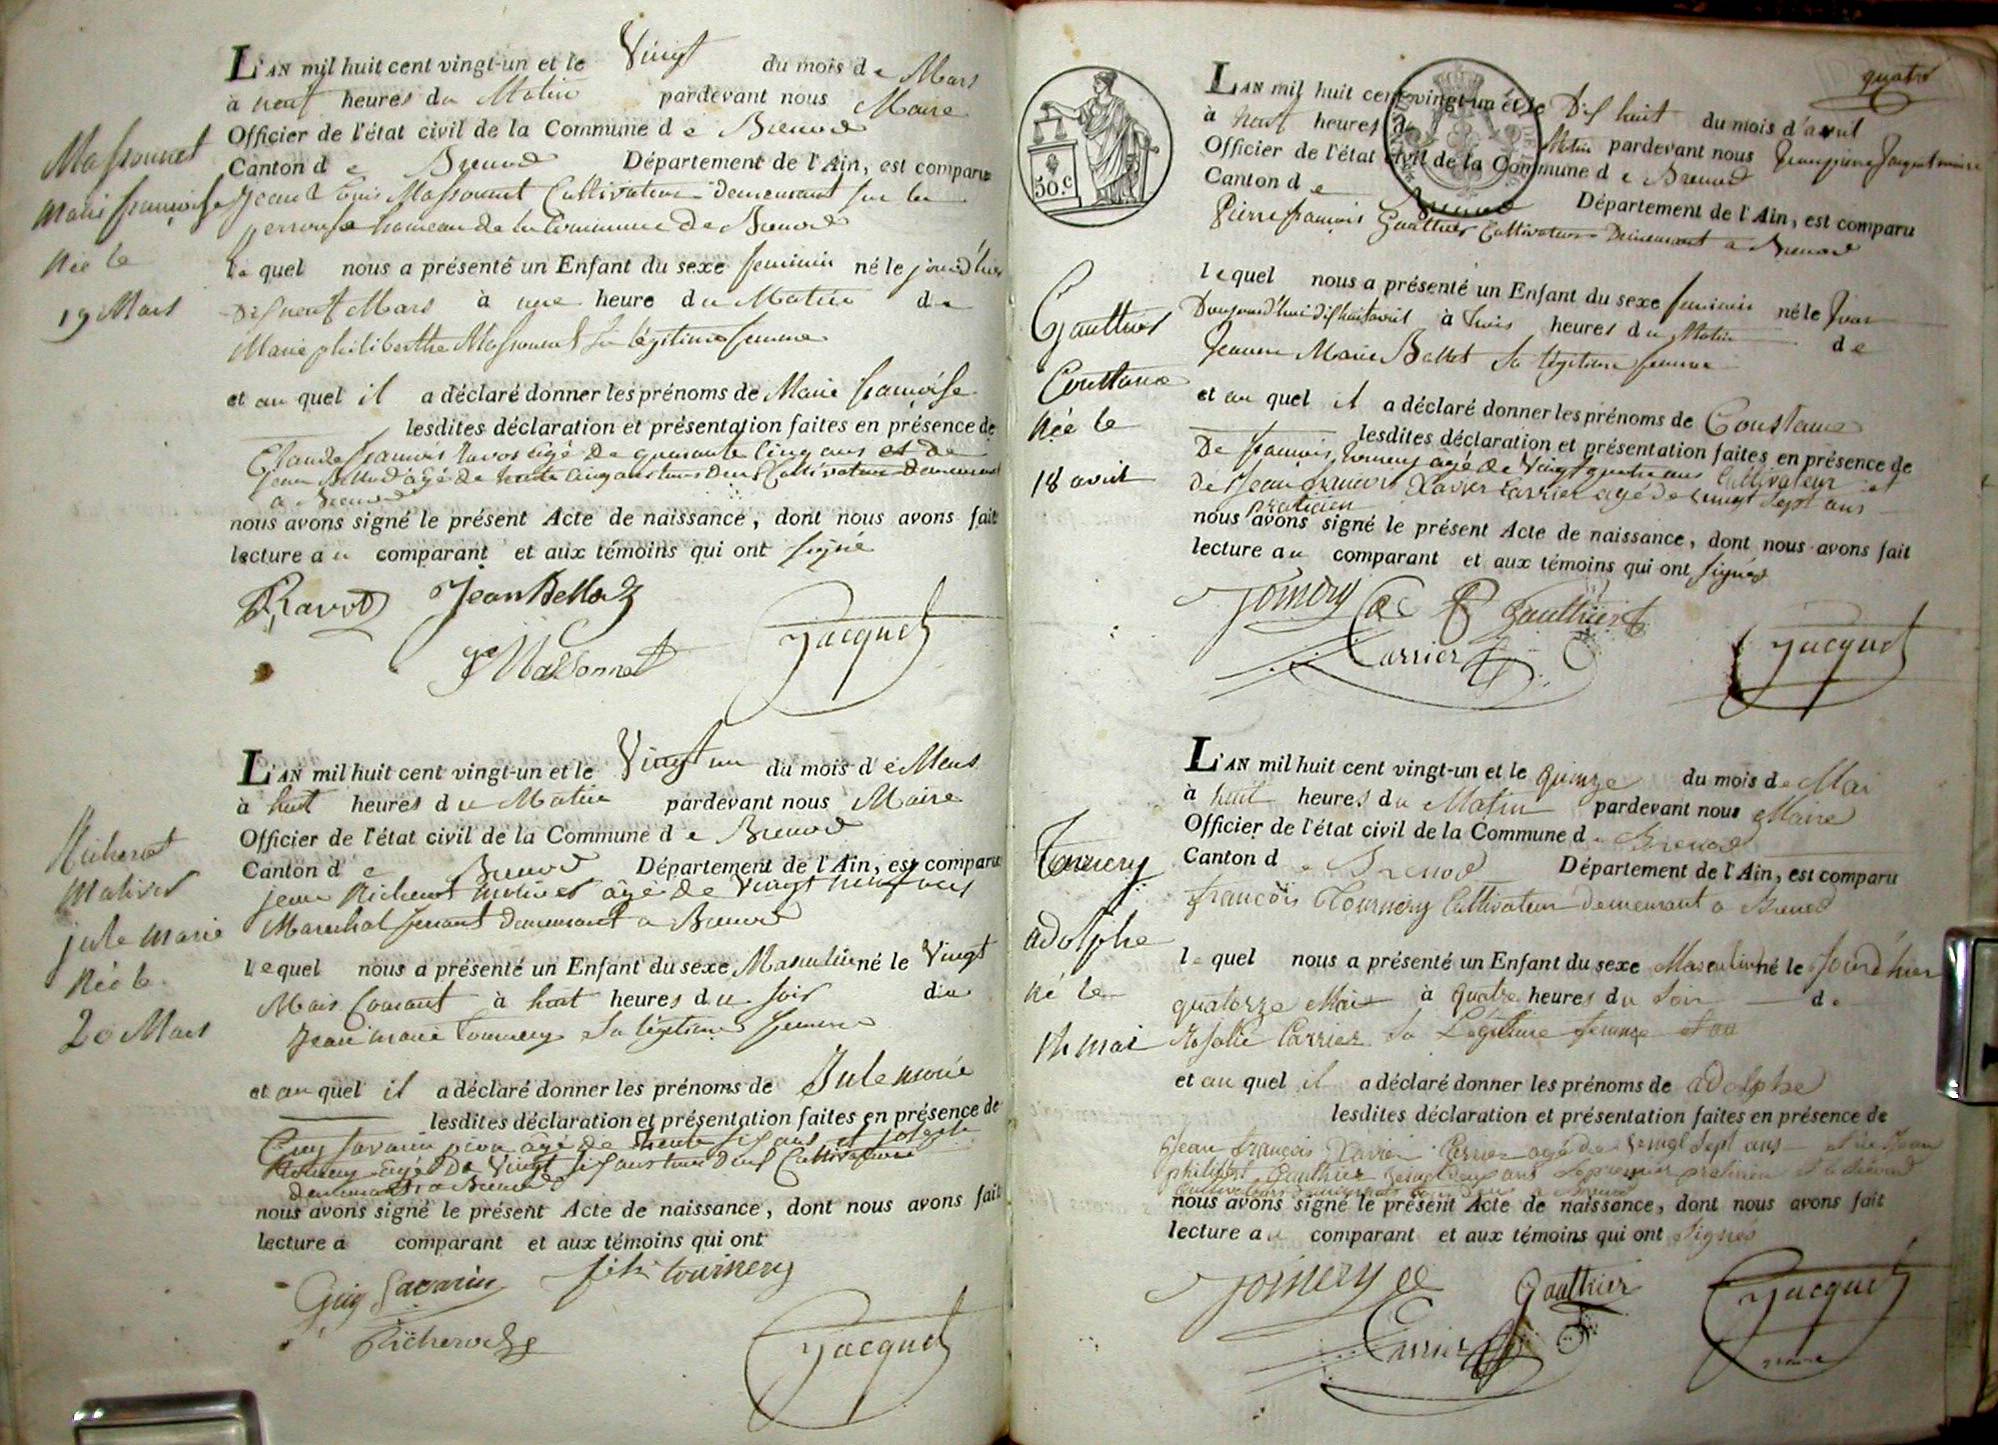 L'AN mil huit cent vingt-un et le Vingt du mois de Mars
à neuf heures du Matin pardevant nous Maire
Officier de l'état civil de la Commune de Brenod
Canton de Brenod Département de l'Ain, est comparu
Jean Louis Massonnet Cultivateur demeurant sur la
perrouse hameau de la Commune de Brenod
lequel nous a présenté un Enfant du sexe feminin né le jourd'hier
Dix neuf Mars à une heure du Matin de
Marie philiberthe Massonnet sa légitime femme
et au quel il a déclaré donner les prénoms de Marie françoise
lesdites déclaration et présentation faites en présence de
Claude françois Ravot âgé de quarante Cinq ans et de
Jean Bellod âgé de trente cinq ans tous deux Cultivateurs demeurant
a Brenod
nous avons signé le présent Acte de naissance, dont nous avons fait
lecture au comparant et aux témoins qui ont signé
Ravot Jean Bellod
Massonnet Jacquet
Massonnet
Marie françoise
Née le
19 Mars
L'AN mil huit cent vingt-un et le Vingt un du mois de Mars
à huit heures du Matin pardevant nous Maire
Officier de l'état civil de la Commune de Brenod
Canton de Brenod Département de l'Ain, est comparu
jean Richerot motivet âgé de Vingt neuf ans
Marechal ferrant demeurant a Brenod
lequel nous a présenté un Enfant du sexe Masculin né le Vingt
Mars Courant à huit heures du soir du
Jean marie Tournery sa légitime femme
et au quel il a déclaré donner les prénoms de Jule marie
lesdites déclaration et présentation faites en présence de
Guy Savarin âgé de trente six ans et joseph
Tournery âgé De Vingt six ans tous deux Cultivateurs
demeurant a Brenod
nous avons signé le présent Acte de naissance, dont nous avons fait
lecture a comparant et aux témoins qui ont
Guy Savarin tournery
Richerot Jacquet
Richerot
Motivet
jule marie
Née le
20 Mars
quatre
50.c
L'AN mil huit cent vingt-un et le Dix huit du mois d'avril
à Neuf heures du Matin pardevant nous Jean pierre Jacquet maire
Officier de l'état civil de la Commune de Brenod
Canton de Brenod Département de l'Ain, est comparu
Pierre françois Gauthier Cultivateur Demeurant a Brenod
lequel nous a présenté un Enfant du sexe feminin né le Jour
D'aujourd'hui dix huit avril à trois heures du Matin de
Jeanne Marie Ballet sa légitime femme
et au quel il a déclaré donner les prénoms de Constance
lesdites déclaration et présentation faites en présence de
De françois Tournery âgé de Vingt quatre ans Cultivateur et
de Jean françois Xavier Carrier agé de vingt sept ans
praticien
nous avons signé le présent Acte de naissance, dont nous avons fait
lecture au comparant et aux témoins qui ont signés
Tornery Gauthier
Carrier Jacquet
Gauthier
Constance
Née le
18 avril
L'AN mil huit cent vingt-un et le quinze du mois de Mai
à huit heures du Matin pardevant nous Maire
Officier de l'état civil de la Commune de Brenod
Canton de Brenod Département de l'Ain, est comparu
françois Tournery Cultivateur demeurant a Brenod
lequel nous a présenté un Enfant du sexe Masculin né le Jourd'hier
quatorze Mai à quatre heures du Soir de
Rosalie Carrier Sa Légitime femme
et au quel il a déclaré donner les prénoms de adolphe
lesdites déclaration et présentation faites en présence de
Jean françois Xavier Carrier agé de vingt sept ans et de Jean
philibert Gauthier vingt deux ans le premier praticien et le second
Cultivateur
nous avons signé le présent Acte de naissance, dont nous avons fait
lecture au comparant et aux témoins qui ont signés
Tornery Gauthier
Carrier Jacquet
maire
Tournery
adolphe
né le
14 mai